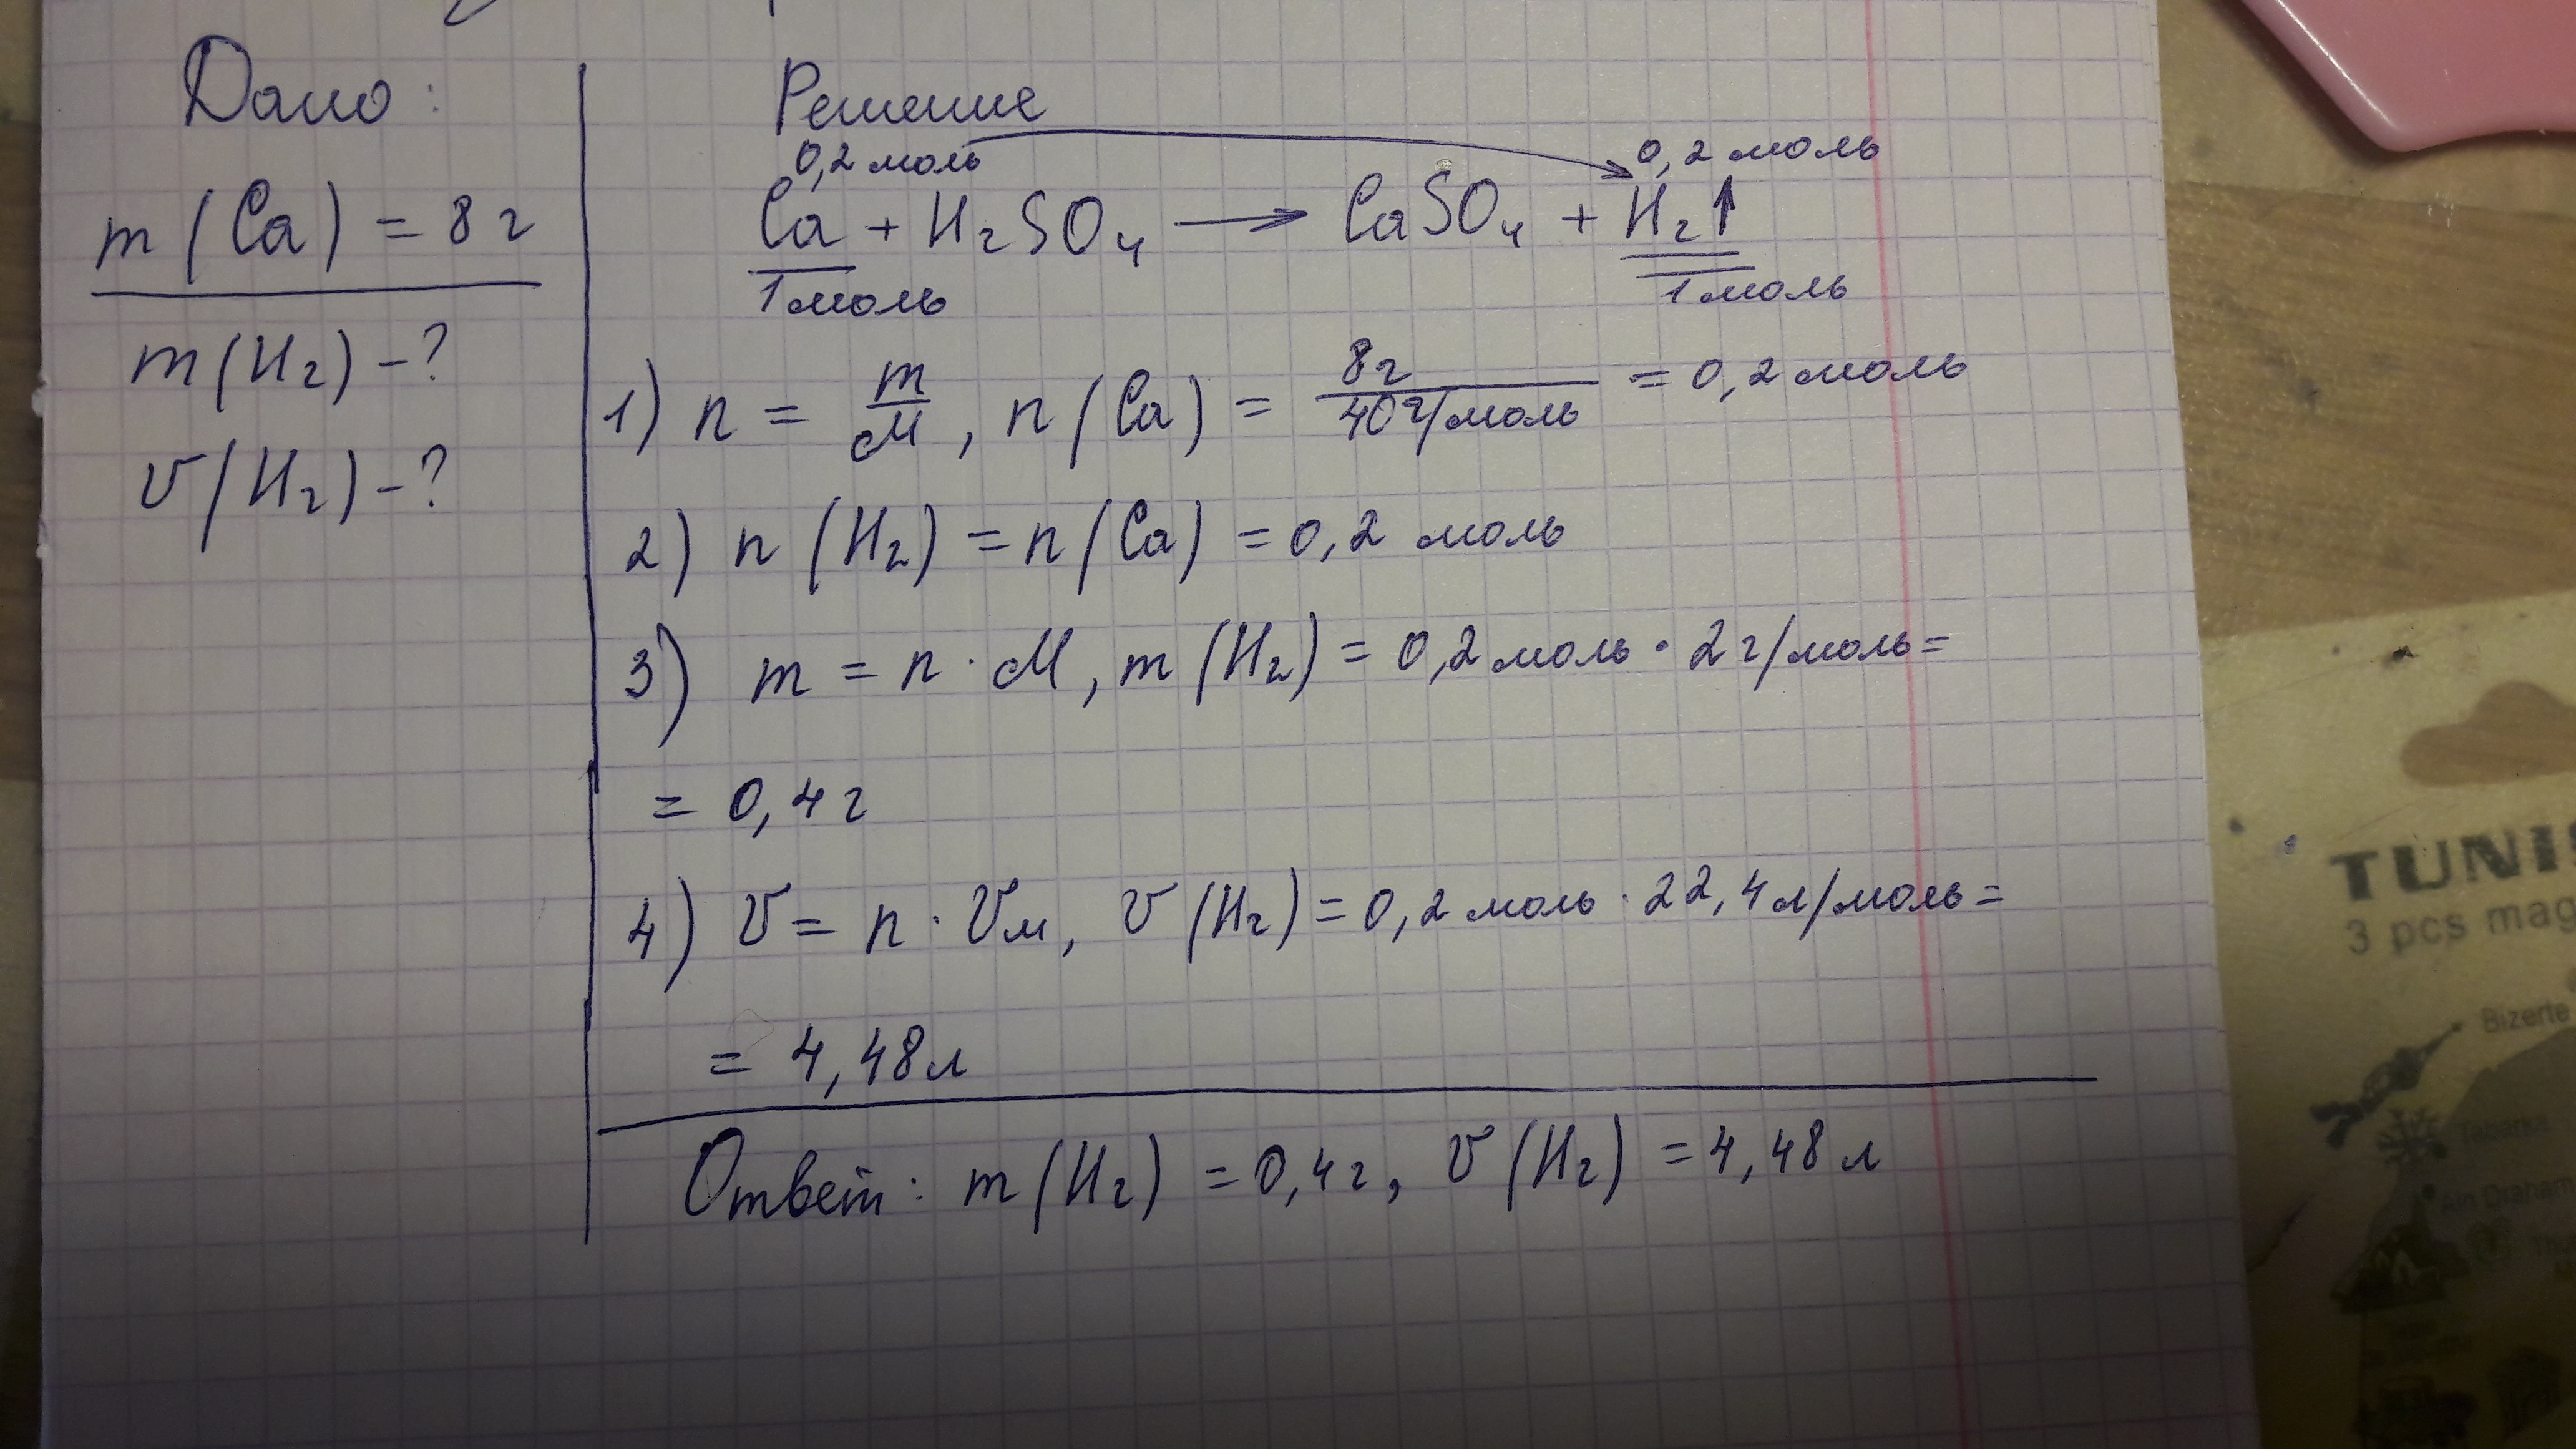 Дано:
m(Ca) = 8 г
m(H₂) - ?
V(H₂) - ?
Решение
0,2 моль 0,2 моль
Ca + H₂SO₄ → CaSO₄ + H₂↑
1 моль 1 моль
1) n = m/M, n(Ca) = 8г/40г/моль = 0,2 моль
2) n(H₂) = n(Ca) = 0,2 моль
3) m = n · M, m(H₂) = 0,2 моль · 2 г/моль =
= 0,4 г
4) V = n · Vм, V(H₂) = 0,2 моль · 22,4 л/моль =
= 4,48 л
Ответ: m(H₂) = 0,4 г, V(H₂) = 4,48 л
TUNIS
3 pcs mag
Bizerte
Tabarka
Ain Draham